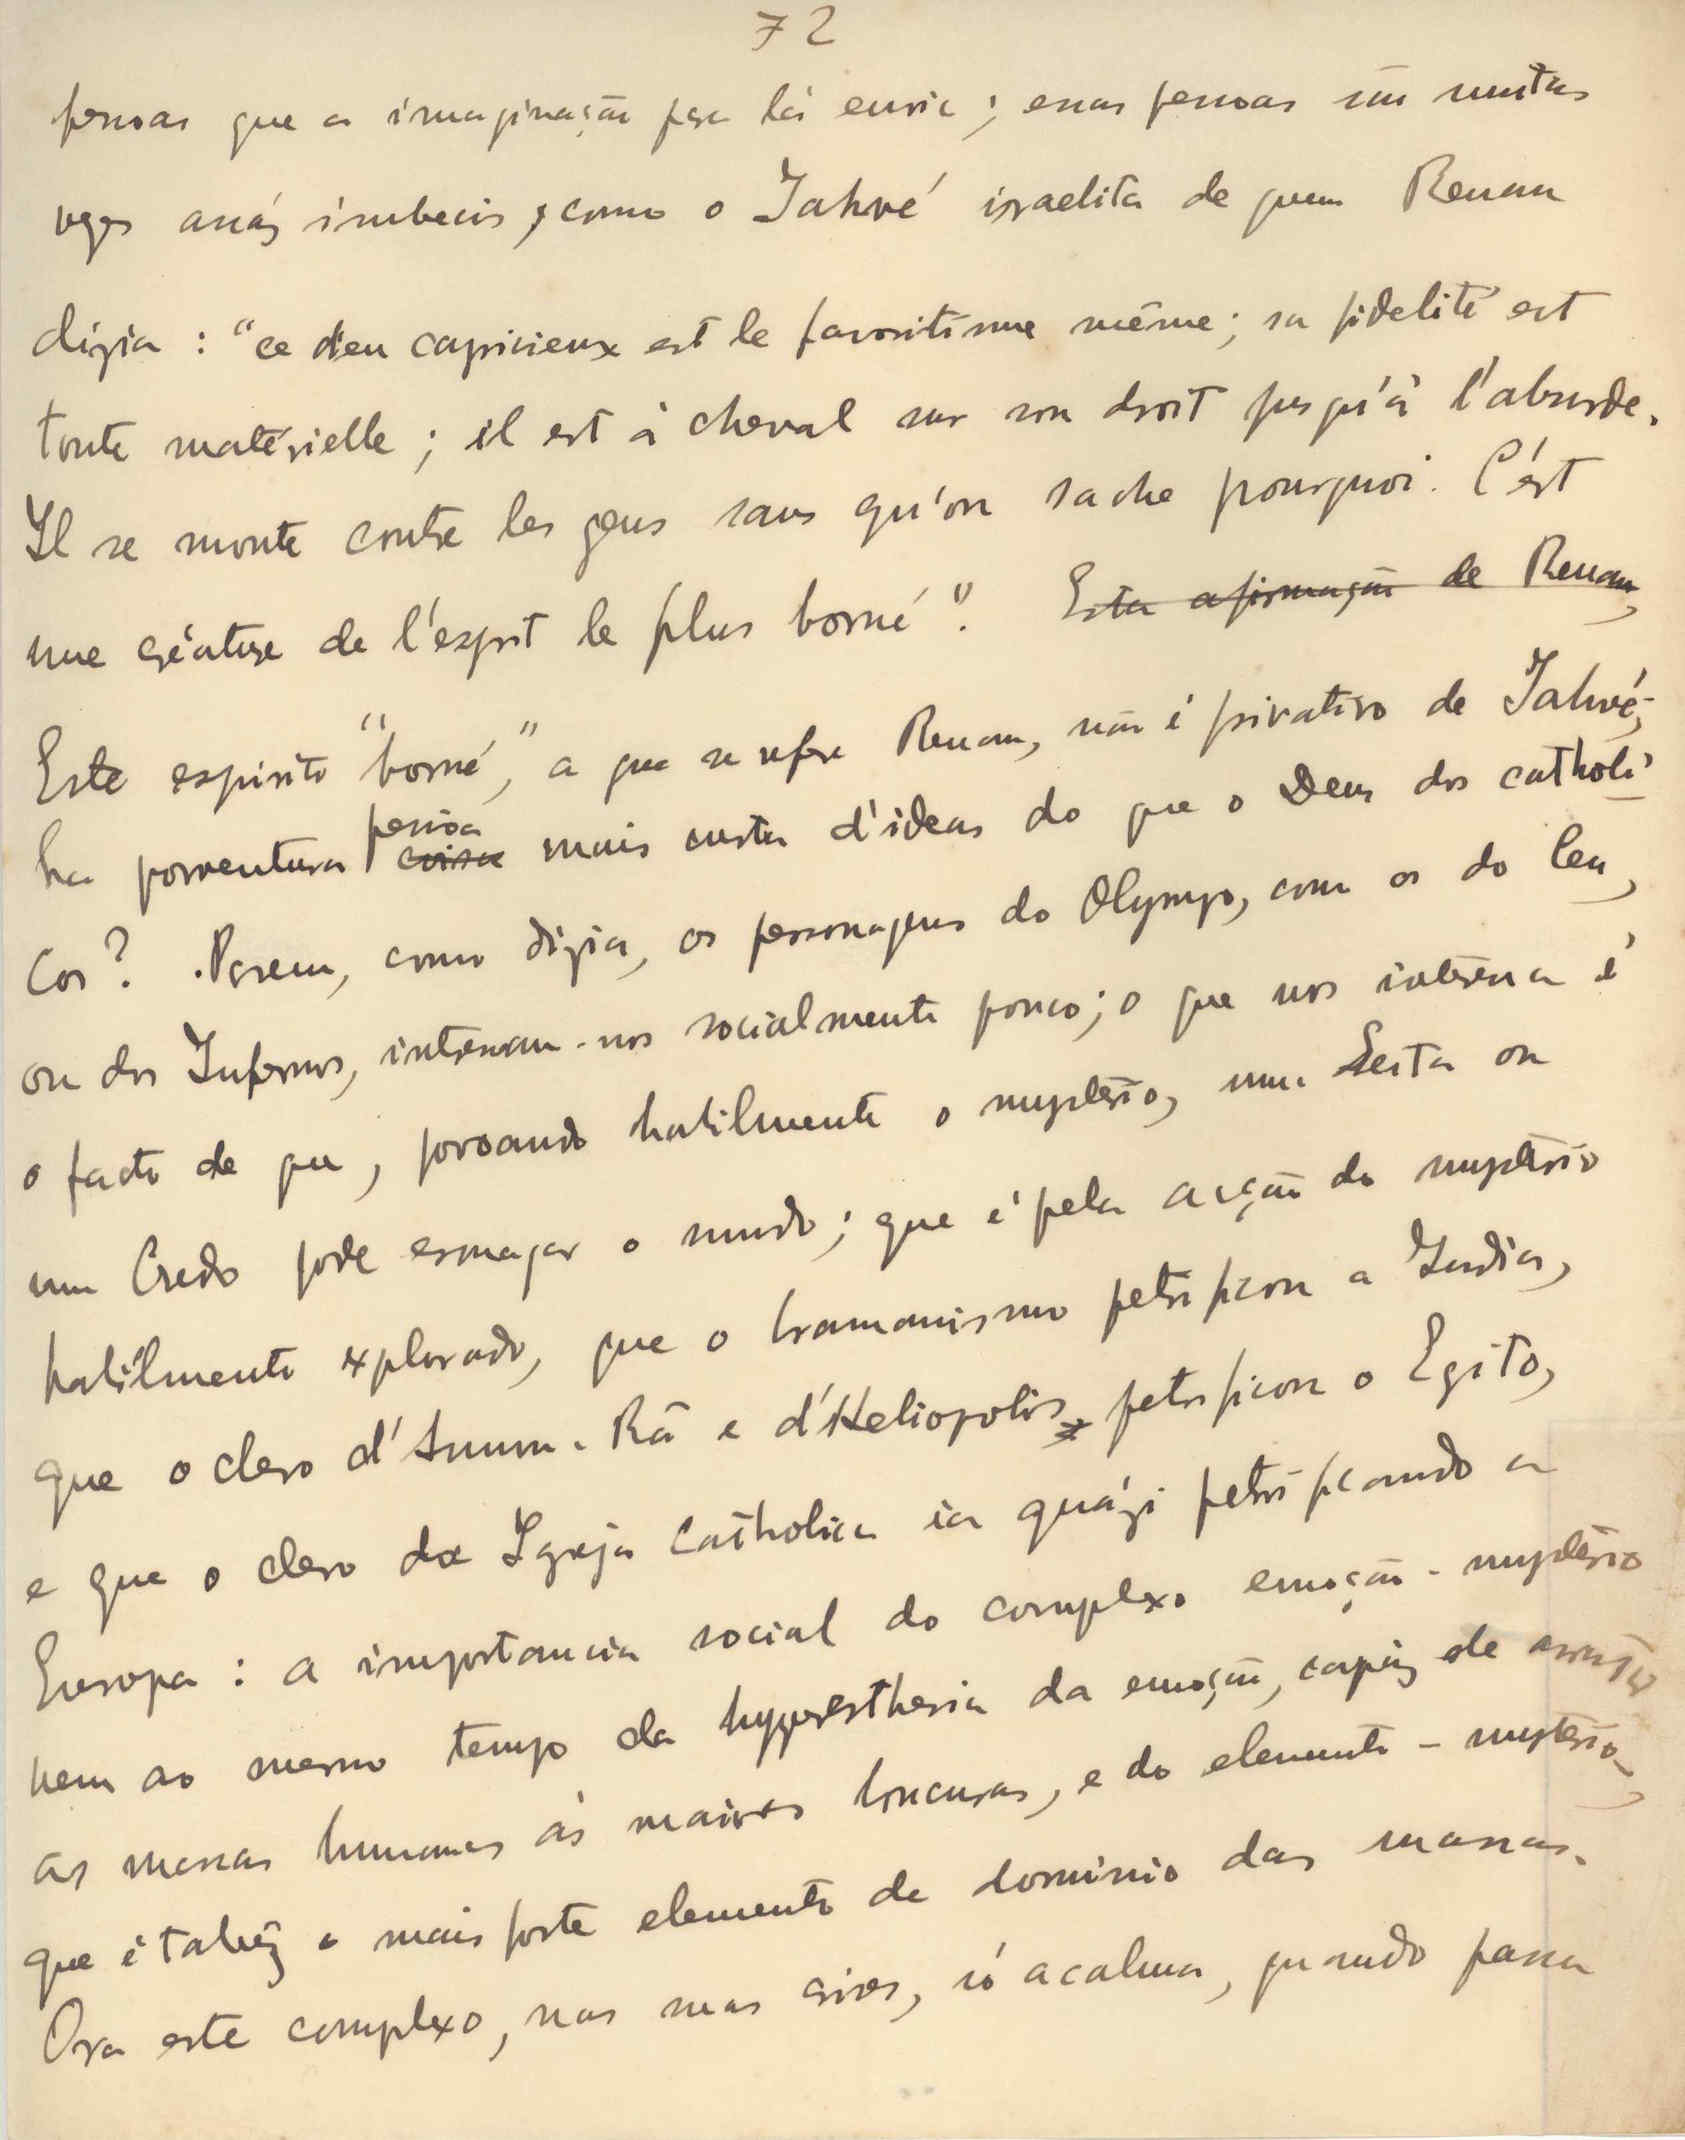 72
pessoas que a imaginação pra lá envia; essas pessoas são muitas
vezes assáz imbecis, como o Jahvé israelita de quem Renan
dizia : "ce dieu capricieux est le favoritisme même; sa fidelité est
toute matérielle; il est à cheval sur son droit jusqu'à l'absurde.
Il se monte contre les gens sans qu'on sache pourquoi. C'ést
une créature de l'esprit le plus borné". Esta afirmação de Renan,
Este espirito "borné," a que se refere Renan, não é privativo de Jahvé;
ha porventura pessoa coisa mais curta d'ideas do que o Deus dos catholi-
cos? Porem, como dizia, os personagens do Olympo, com os do Ceu,
ou dos Infernos, interessam-nos socialmente pouco; o que nos interessa é
o facto de que, povoando habilmente o mysterio, uma Seita ou
um Credo pode esmagar o mundo; que é pela acção do mysterio
habilmente explorado, que o bramanismo petrificou a India,
que o clero d'Amum-Râ e d'Heliopolis petrificou o Egito,
e que o clero da Igreja Catholica ia quázi petrificando a
Europa : a importancia social do complexo emoção-mysterio
vem ao mesmo tempo da hyperesthesia da emoção, capáz de arrastar
as massas humanas ás maiores loucuras, e do elemento - mysterio -,
que é talvêz o mais forte elemento de dominio das massas.
Ora este complexo, nas suas crises, só acalma, quando passa